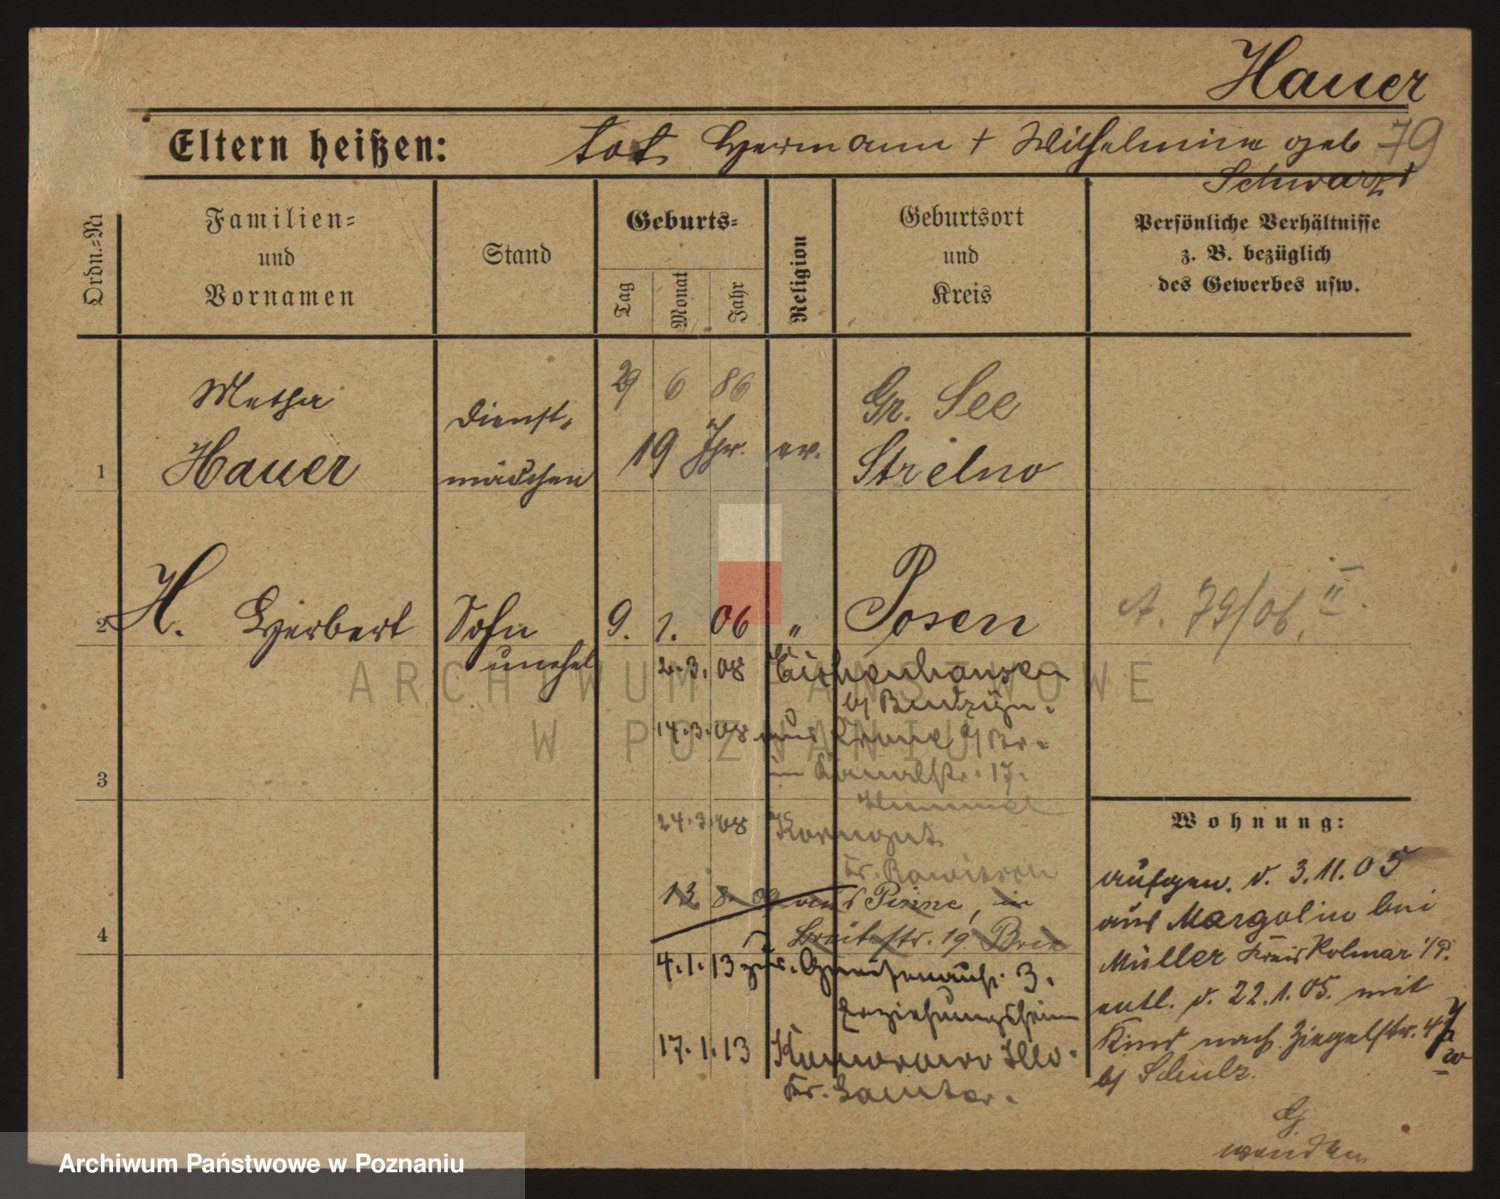 Hauer
Eltern heißen: tot Hermann + Wilhelmine geb 79
Schwarz
Ordn.=Nr
Familien=
und
Vornamen
Stand
Geburts=
Tag Monat Jahr
Religion
Geburtsort
und
Kreis
Persönliche Verhältnisse
z. B. bezüglich
des Gewerbes usw.
29 6 86
Metha Dienst= Gr. See
1 Hauer mädchen 19 Jhr. ev. Strelno
2 H. Herbert Sohn 9. 1. 06 " Posen A. 79/06. II.
unehel 2.3.08 Eichenhausen
b/
14.3.08 aus Krone a/Br.
3 in Kanalstr. 17.
Hummel
24.3.08
Kr. Rawitsch
12 8. 09 aus Pinne, in
4 Breitestr. 19
4.1.13 zur. Gneisenaustr. 3.
Erziehungsheim
17.1.13
Kr. Samter.
Wohnung:
aufgen. d. 3.11.05
aus Margolin bei
Müller Kreis Kolmar i/P.
entl. d. 22.1.05. mit
Kind nach Ziegelstr. 4
b/ Schulz.
wenden
ARCHIWUM PAŃSTWOWE
W POZNANIU
Archiwum Państwowe w Poznaniu